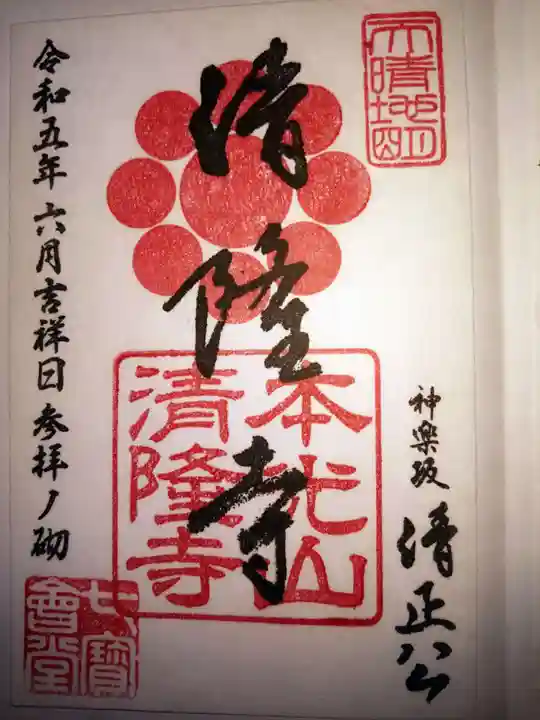 天晴地明
神楽坂 清正公
清隆寺
本光山
清隆寺
令和五年六月吉祥日参拝ノ砌
七寶
會堂